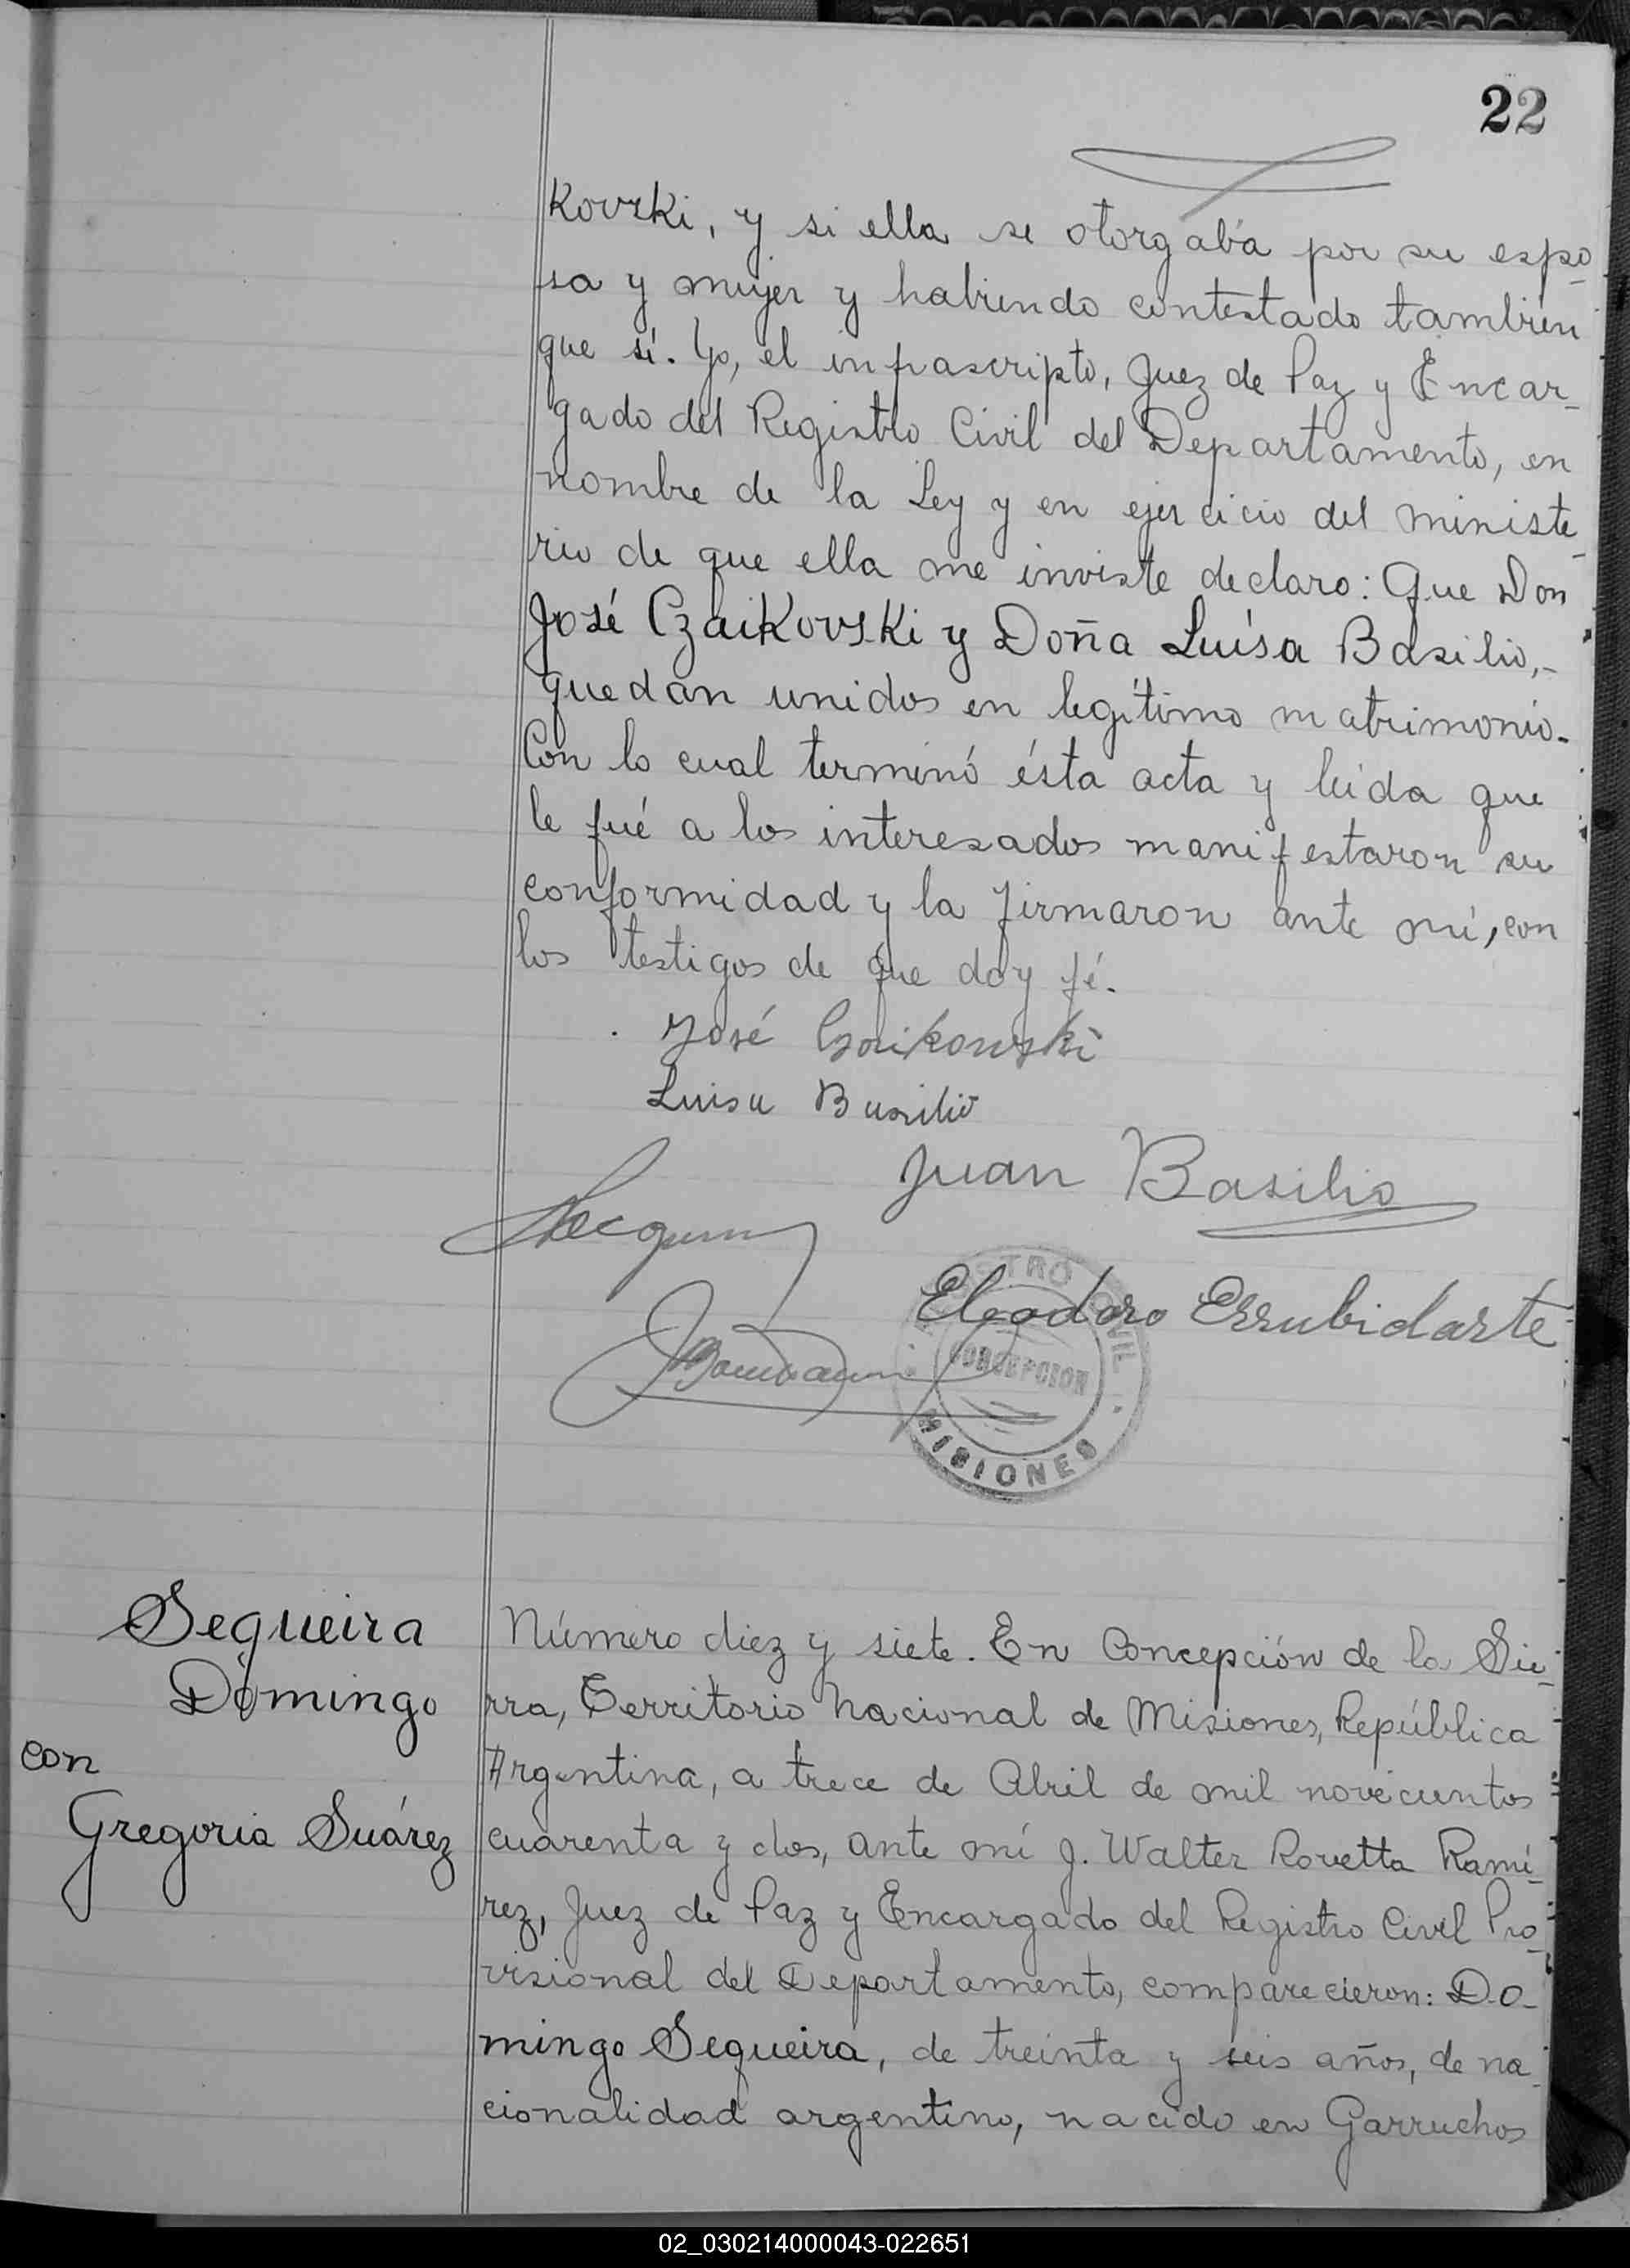 22
Kovski, y si ella se otorgaba por su espo-
sa y mujer y habiendo contestado tambien
que sí. Yo, el infrascripto, Juez de Paz y Encar-
gado del Registro Civil del Departamento, en
nombre de la Ley y en ejercicio del ministe-
rio de que ella me inviste declaro: Que Don
José Czaikovski y Doña Luísa Basilio,-
quedan unidos en legítimo matrimonio.
Con lo cual terminó ésta acta y leida que
le fué a los interesados manifestaron su
conformidad y la firmaron ante mí, con
los testigos de que doy fé.
José Czaikowski
Luisa Basilio
Juan Basilio
Eleodoro Errubidarte
REGISTRO CIVIL
CONCEPCION
MISIONES
Sequeira
Domingo
con
Gregoria Suárez
Número diez y siete. En Concepción de la Sie-
rra, Territorio Nacional de Misiones, República
Argentina, a trece de Abril de mil novecientos
cuarenta y dos, ante mí J. Walter Rovetta Ramí-
rez, Juez de Paz y Encargado del Registro Civil Pro-
visional del Departamento, comparecieron: Do-
mingo Sequeira, de treinta y seis años, de na-
cionalidad argentino, nacido en Garruchos
02_030214000043-022651